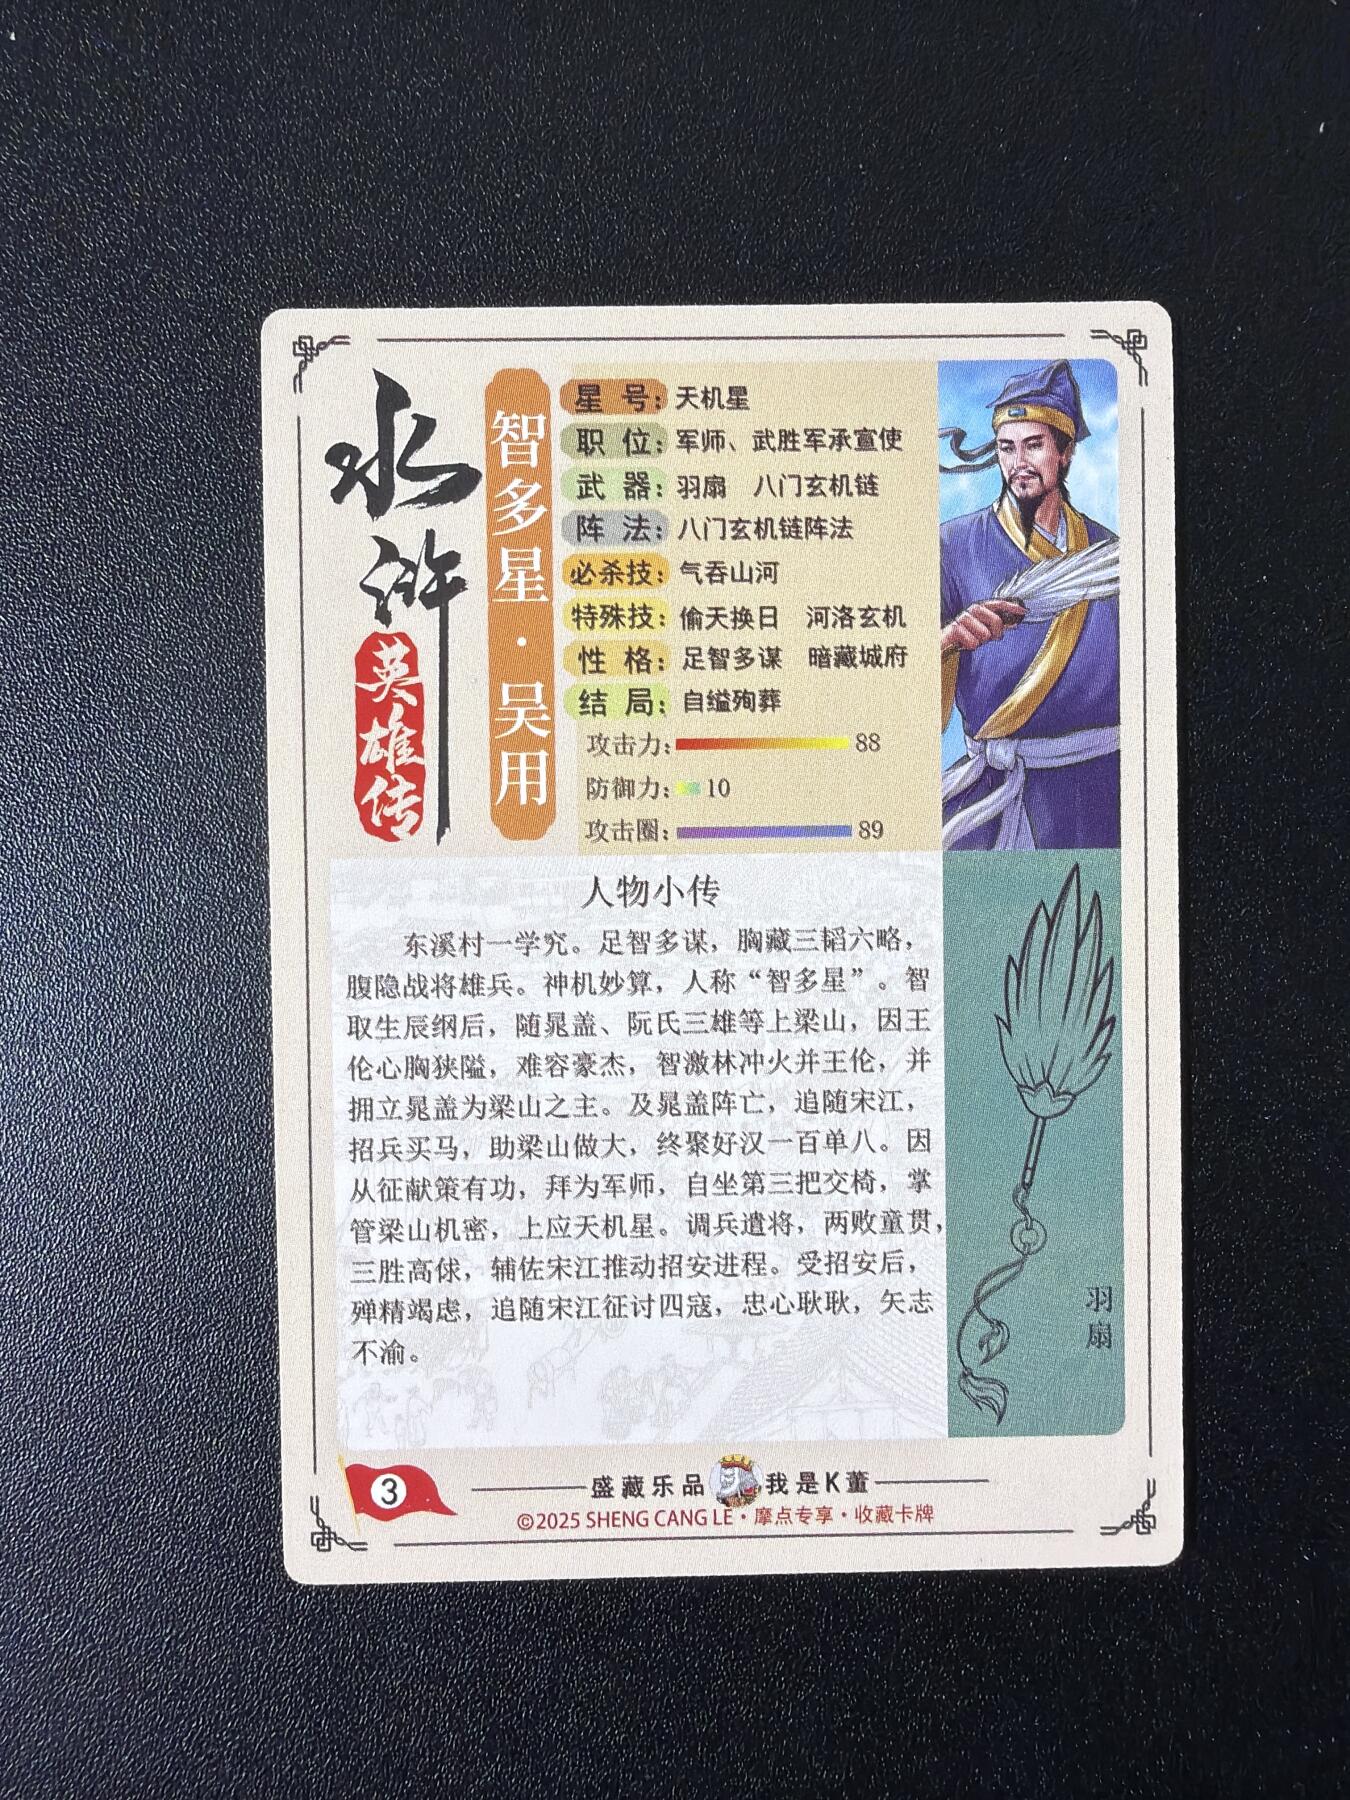 水浒
英雄传
智多星·吴用
星号：天机星
职位：军师、武胜军承宣使
武器：羽扇 八门玄机链
阵法：八门玄机链阵法
必杀技：气吞山河
特殊技：偷天换日 河洛玄机
性格：足智多谋 暗藏城府
结局：自缢殉葬
攻击力：88
防御力：10
攻击圈：89
人物小传
东溪村一学究。足智多谋，胸藏三韬六略，
腹隐战将雄兵。神机妙算，人称“智多星”。智
取生辰纲后，随晁盖、阮氏三雄等上梁山，因王
伦心胸狭隘，难容豪杰，智激林冲火并王伦，并
拥立晁盖为梁山之主。及晁盖阵亡，追随宋江，
招兵买马，助梁山做大，终聚好汉一百单八。因
从征献策有功，拜为军师，自坐第三把交椅，掌
管梁山机密，上应天机星。调兵遣将，两败童贯，
三胜高俅，辅佐宋江推动招安进程。受招安后，
殚精竭虑，追随宋江征讨四寇，忠心耿耿，矢志
不渝。
羽扇
3
盛藏乐品 我是K董
©2025 SHENG CANG LE·摩点专享·收藏卡牌